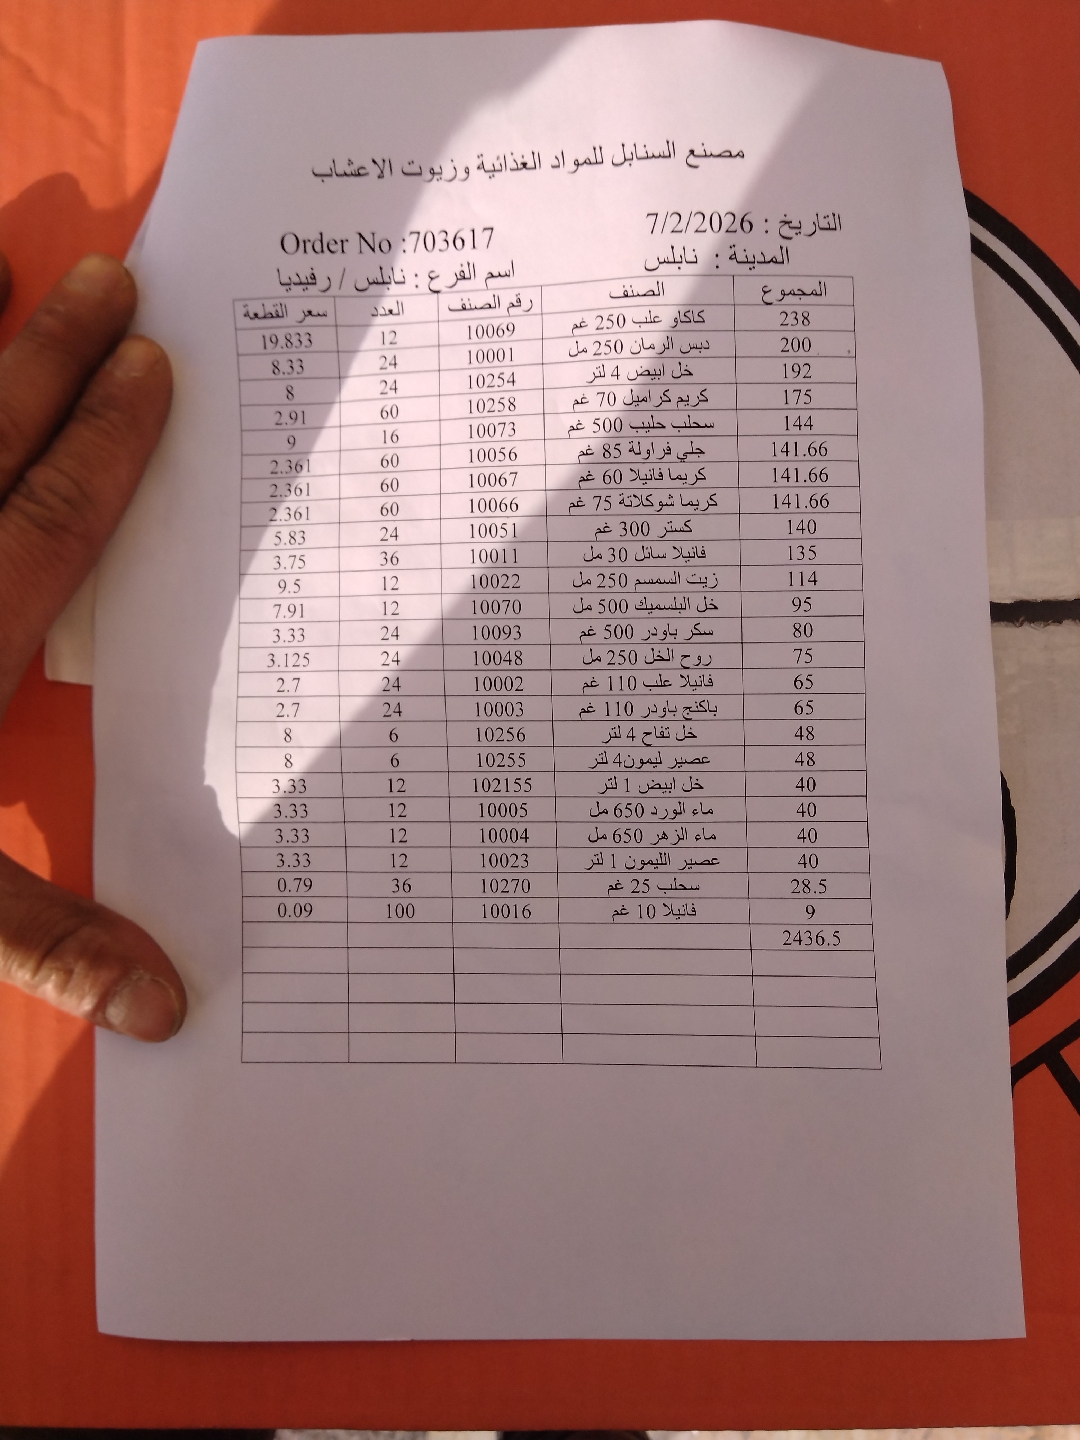 مصنع السنابل للمواد الغذائية وزيوت الاعشاب
التاريخ : 7/2/2026 Order No :703617
المدينة : نابلس اسم الفرع : نابلس / رفيديا
المجموع الصنف رقم الصنف العدد سعر القطعة
238 كاكاو علب 250 غم 10069 12 19.833
200 دبس الرمان 250 مل 10001 24 8.33
192 خل ابيض 4 لتر 10254 24 8
175 كريم كراميل 70 غم 10258 60 2.91
144 سحلب حليب 500 غم 10073 16 9
141.66 جلي فراولة 85 غم 10056 60 2.361
141.66 كريما فانيلا 60 غم 10067 60 2.361
141.66 كريما شوكلاتة 75 غم 10066 60 2.361
140 كستر 300 غم 10051 24 5.83
135 فانيلا سائل 30 مل 10011 36 3.75
114 زيت السمسم 250 مل 10022 12 9.5
95 خل البلسميك 500 مل 10070 12 7.91
80 سكر باودر 500 غم 10093 24 3.33
75 روح الخل 250 مل 10048 24 3.125
65 فانيلا علب 110 غم 10002 24 2.7
65 باكنج باودر 110 غم 10003 24 2.7
48 خل تفاح 4 لتر 10256 6 8
48 عصير ليمون4 لتر 10255 6 8
40 خل ابيض 1 لتر 102155 12 3.33
40 ماء الورد 650 مل 10005 12 3.33
40 ماء الزهر 650 مل 10004 12 3.33
40 عصير الليمون 1 لتر 10023 12 3.33
28.5 سحلب 25 غم 10270 36 0.79
9 فانيلا 10 غم 10016 100 0.09
2436.5